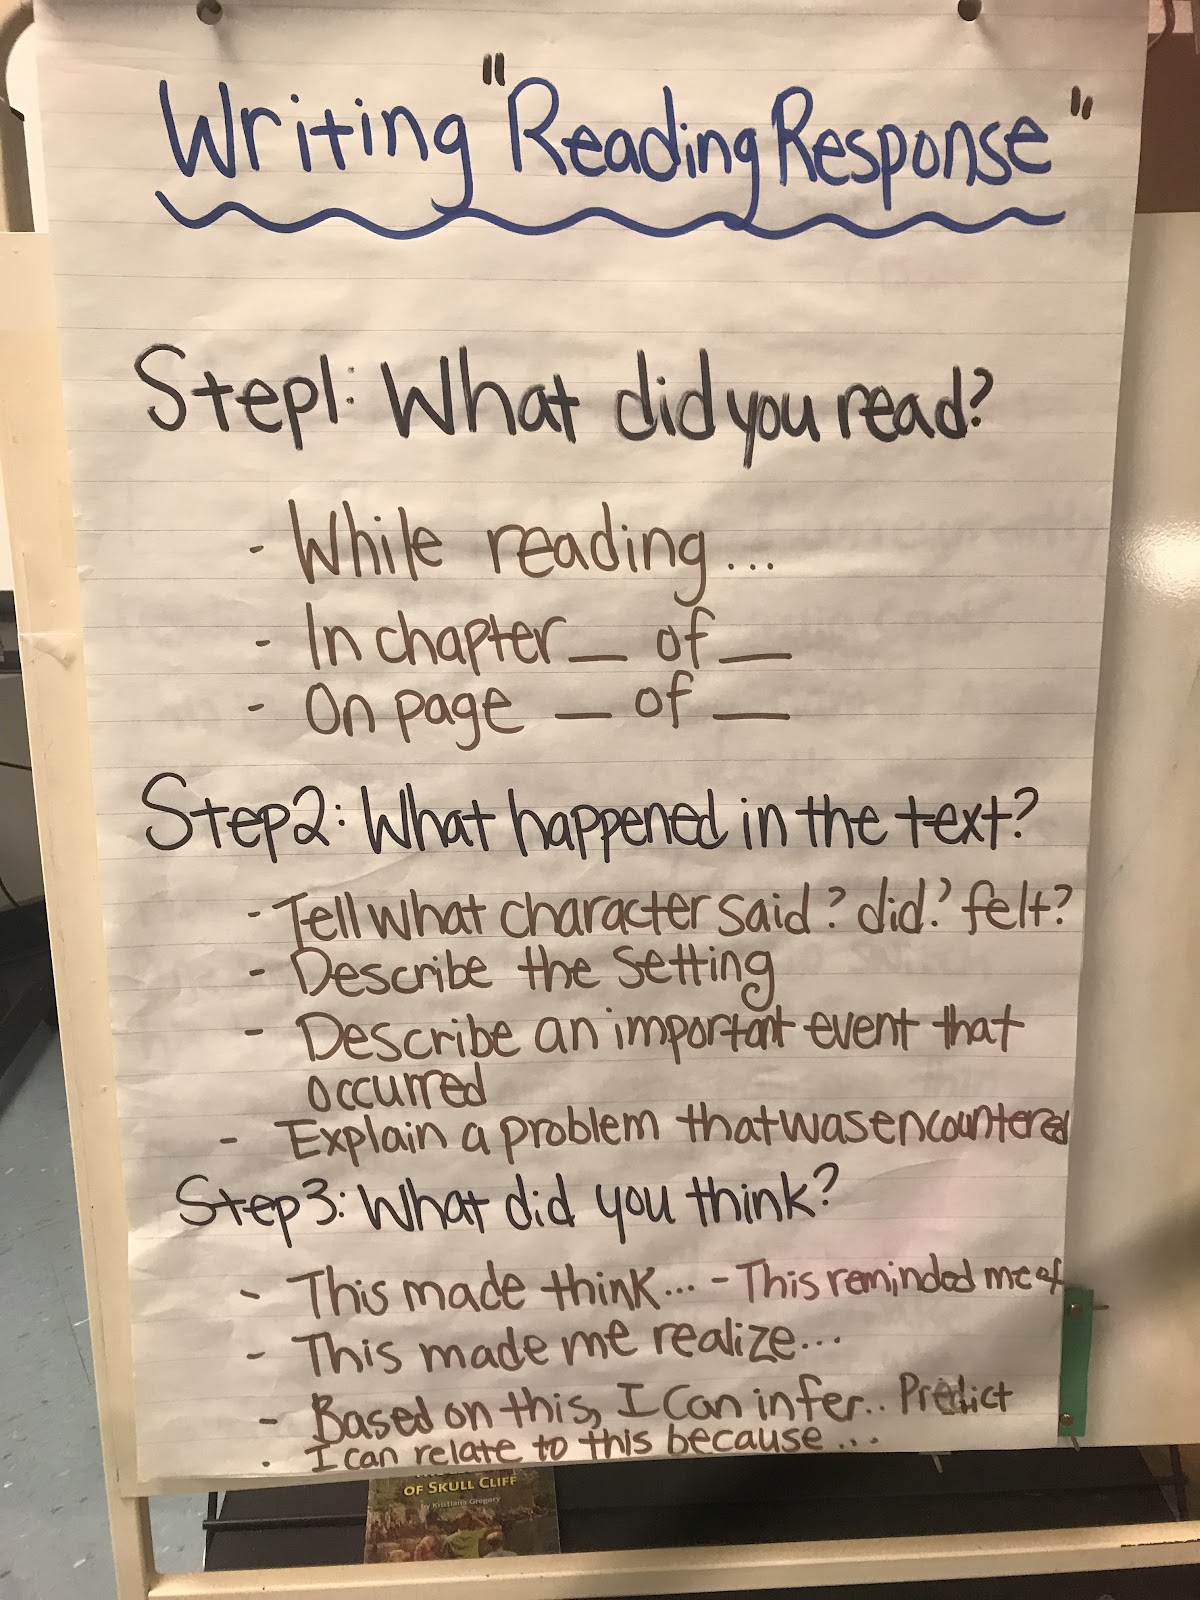 Writing "Reading Response"
Step1: What did you read?
- While reading...
- In chapter __ of __
- On page __ of __
Step2: What happened in the text?
- Tell what character said? did? felt?
- Describe the setting
- Describe an important event that
occurred
- Explain a problem that was encountered
Step3: What did you think?
- This made think... - This reminded me of
- This made me realize...
- Based on this, I can infer.. Predict
. I can relate to this because...
OF SKULL CLIFF
by Kristiana Gregory